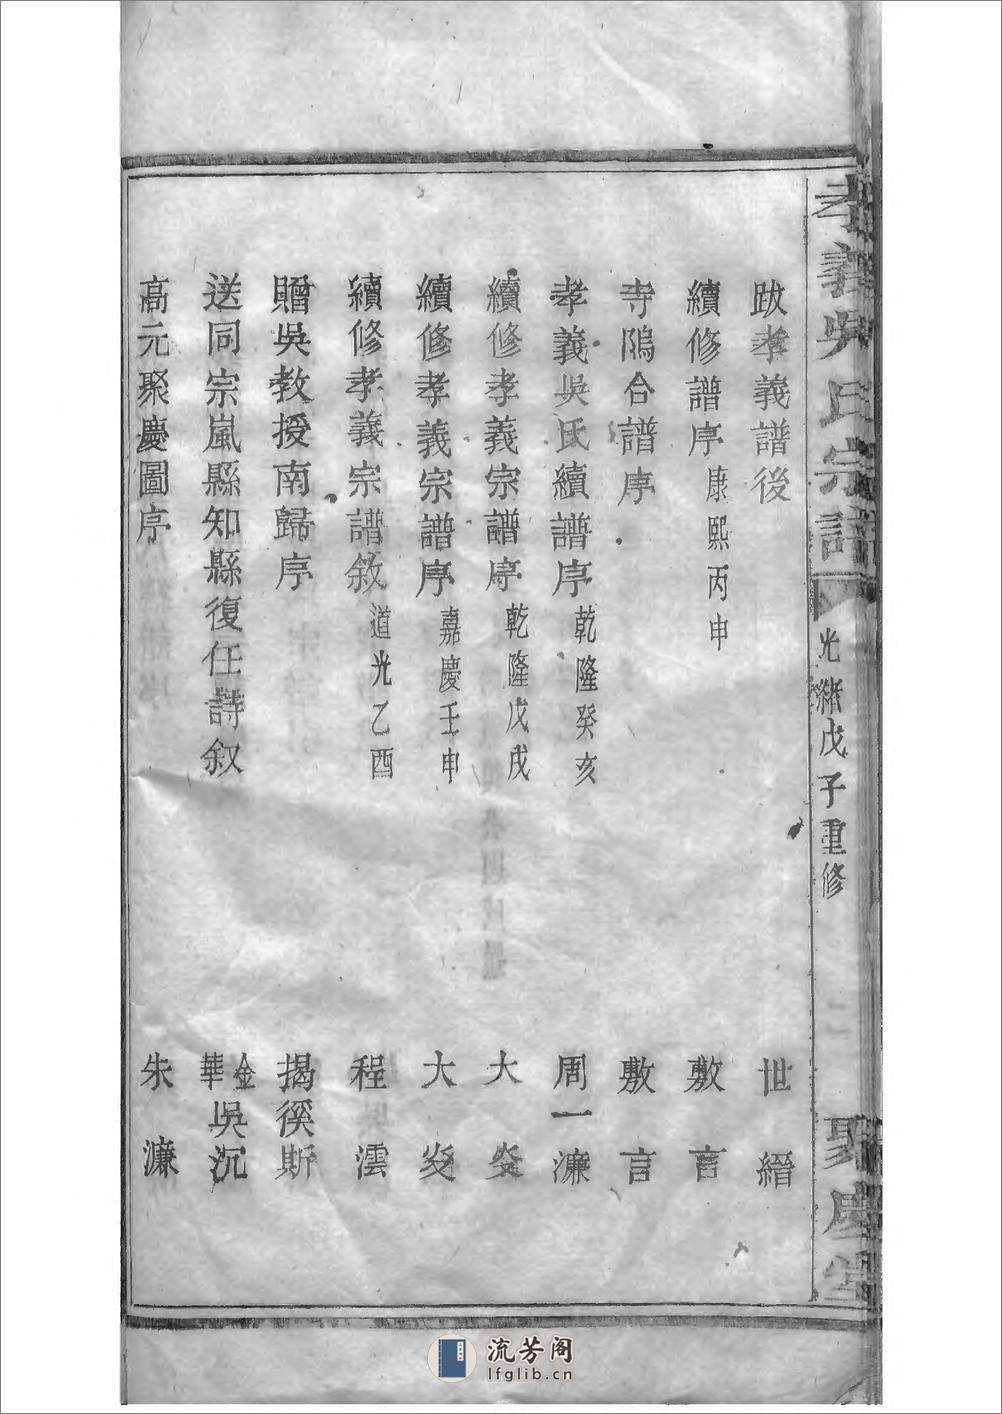 孝義吳氏宗譜 光緒戊子重修 二 聚慶堂
跋孝義譜後 世縉
續修譜序 康熙丙申 敷言
寺隖合譜序 敷言
孝義吳氏續譜序 乾隆癸亥 周一濂
續修孝義宗譜序 乾隆戊戌 大炎
續修孝義宗譜序 嘉慶壬申 大炎
續修孝義宗譜敘 道光乙酉 程澐
贈吳教授南歸序 揭徯斯
送同宗嵐縣知縣復任詩叙 金華吳沉
高元聚慶圖序 朱濂
流芳阁
lfglib.cn